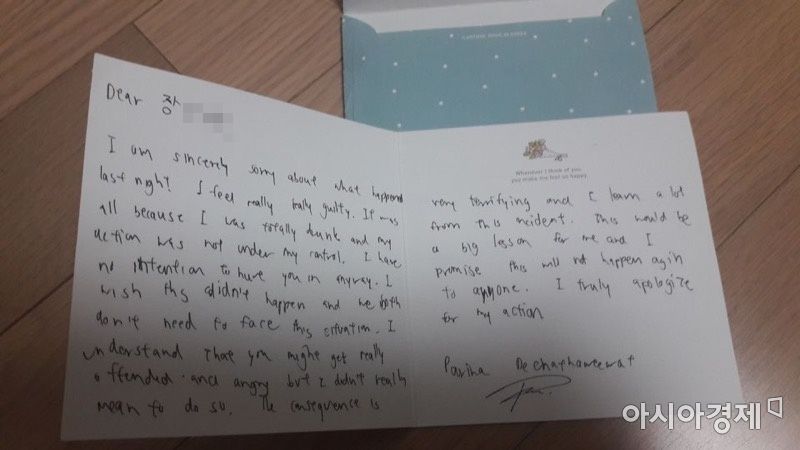 Dear 장
I am sincerely sorry about what happend
last night. I feel really really guilty. It was
all because I was totally drunk and my
action was not under my control. I have
no intention to hurt you in anyway. I
wish this didn't happen and we both
don't need to face this situation. I
understand that you might get really
offended and angry but I didn't really
mean to do so. The consequence is
Whenever I think of you
you make me feel so happy
very terrifying and I learn a lot
from this incident. This would be
a big lesson for me and I
promise this will not happen again
to anyone. I truly apologize
for my action
Parina Dechathaweewat
아시아경제